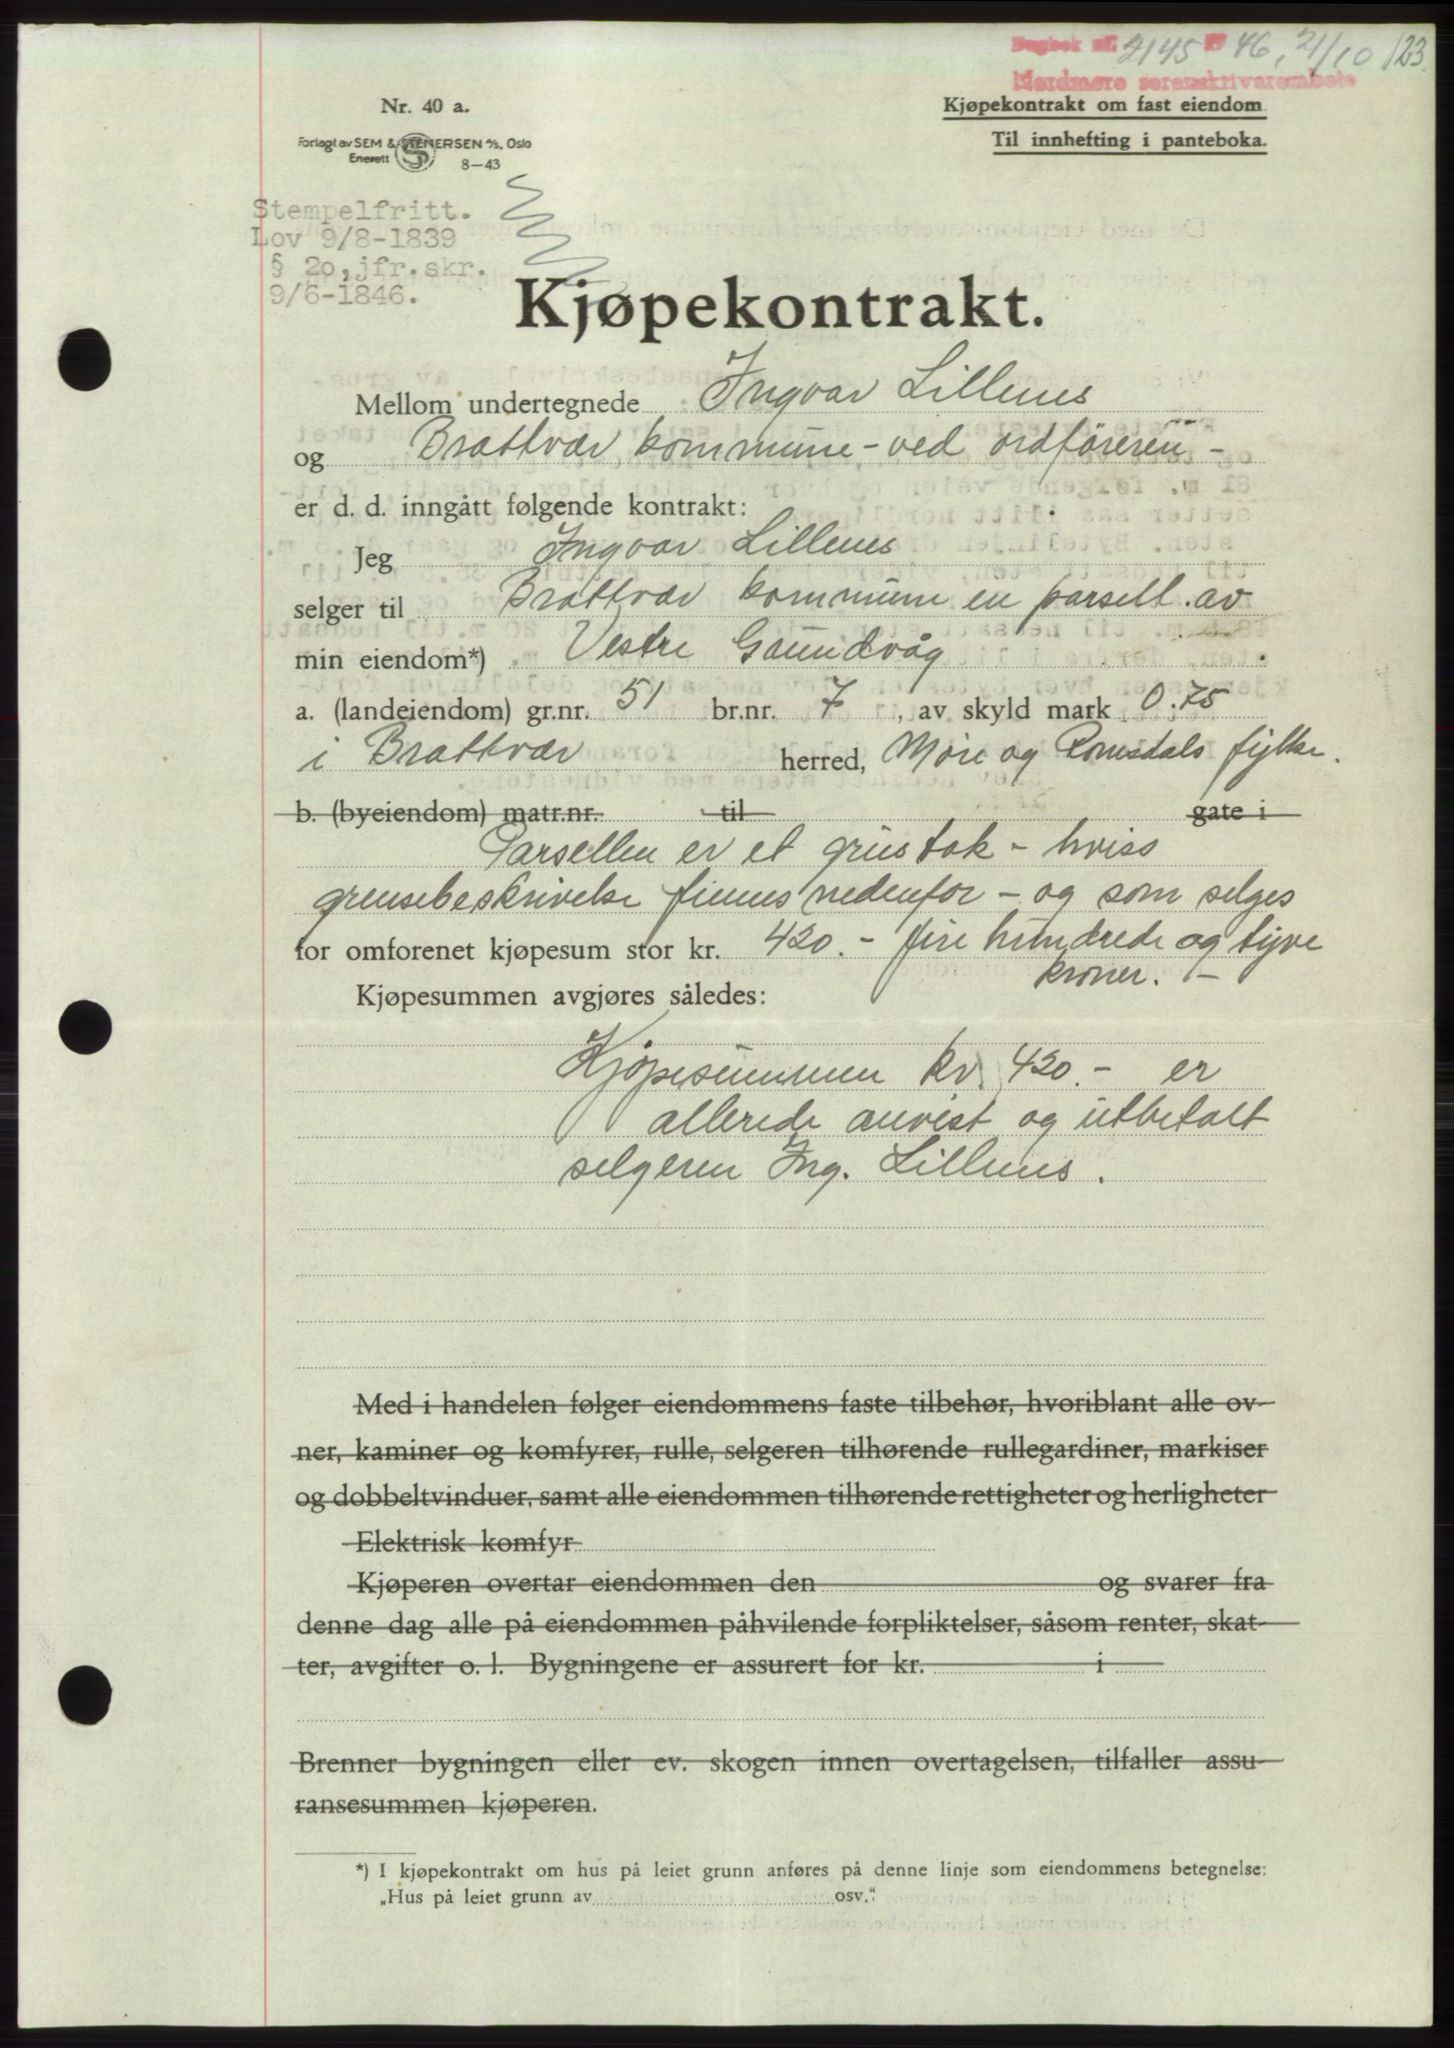 Dagbok nr. 2145 46, 21/10 123
Nordmøre sorenskrivarembete
Nr. 40 a.
Kjøpekontrakt om fast eiendom
Forlagt av SEM & STENERSEN A/S, Oslo
Enerett 8–43
Til innhefting i panteboka.
Stempelfritt.
Lov 9/8-1839
§ 20, jfr. skr.
9/6-1846.
Kjøpekontrakt.
Mellom undertegnede Ingvar Lillenes
og Brattvær kommune - ved ordføreren -
er d. d. inngått følgende kontrakt:
Jeg Ingvar Lillenes
selger til Brattvær kommune en parsell av
min eiendom*) Vestre Gaundvåg
a. (landeiendom) gr.nr. 51 br.nr. 7, av skyld mark 0.75
i Brattvær herred, Møre og Romsdals fylke.
b. (byeiendom) matr.nr. til gate i
Parsellen er et grustak - hviss
grensebeskrivelse finnes nedenfor - og som selges
for omforenet kjøpesum stor kr. 420.- fire hundrede og tyve
kroner. -
Kjøpesummen avgjøres således:
Kjøpesummen kr. 420.- er
allerede anvist og utbetalt
selgeren Ing. Lillenes.
Med i handelen følger eiendommens faste tilbehør, hvoriblant alle ov-
ner, kaminer og komfyrer, rulle, selgeren tilhørende rullegardiner, markiser
og dobbeltvinduer, samt alle eiendommen tilhørende rettigheter og herligheter
Elektrisk komfyr
Kjøperen overtar eiendommen den og svarer fra
denne dag alle på eiendommen påhvilende forpliktelser, såsom renter, skat-
ter, avgifter o. l. Bygningene er assurert for kr. i
Brenner bygningen eller ev. skogen innen overtagelsen, tilfaller assu-
ransesummen kjøperen.
*) I kjøpekontrakt om hus på leiet grunn anføres på denne linje som eiendommens betegnelse:
„Hus på leiet grunn av osv.“